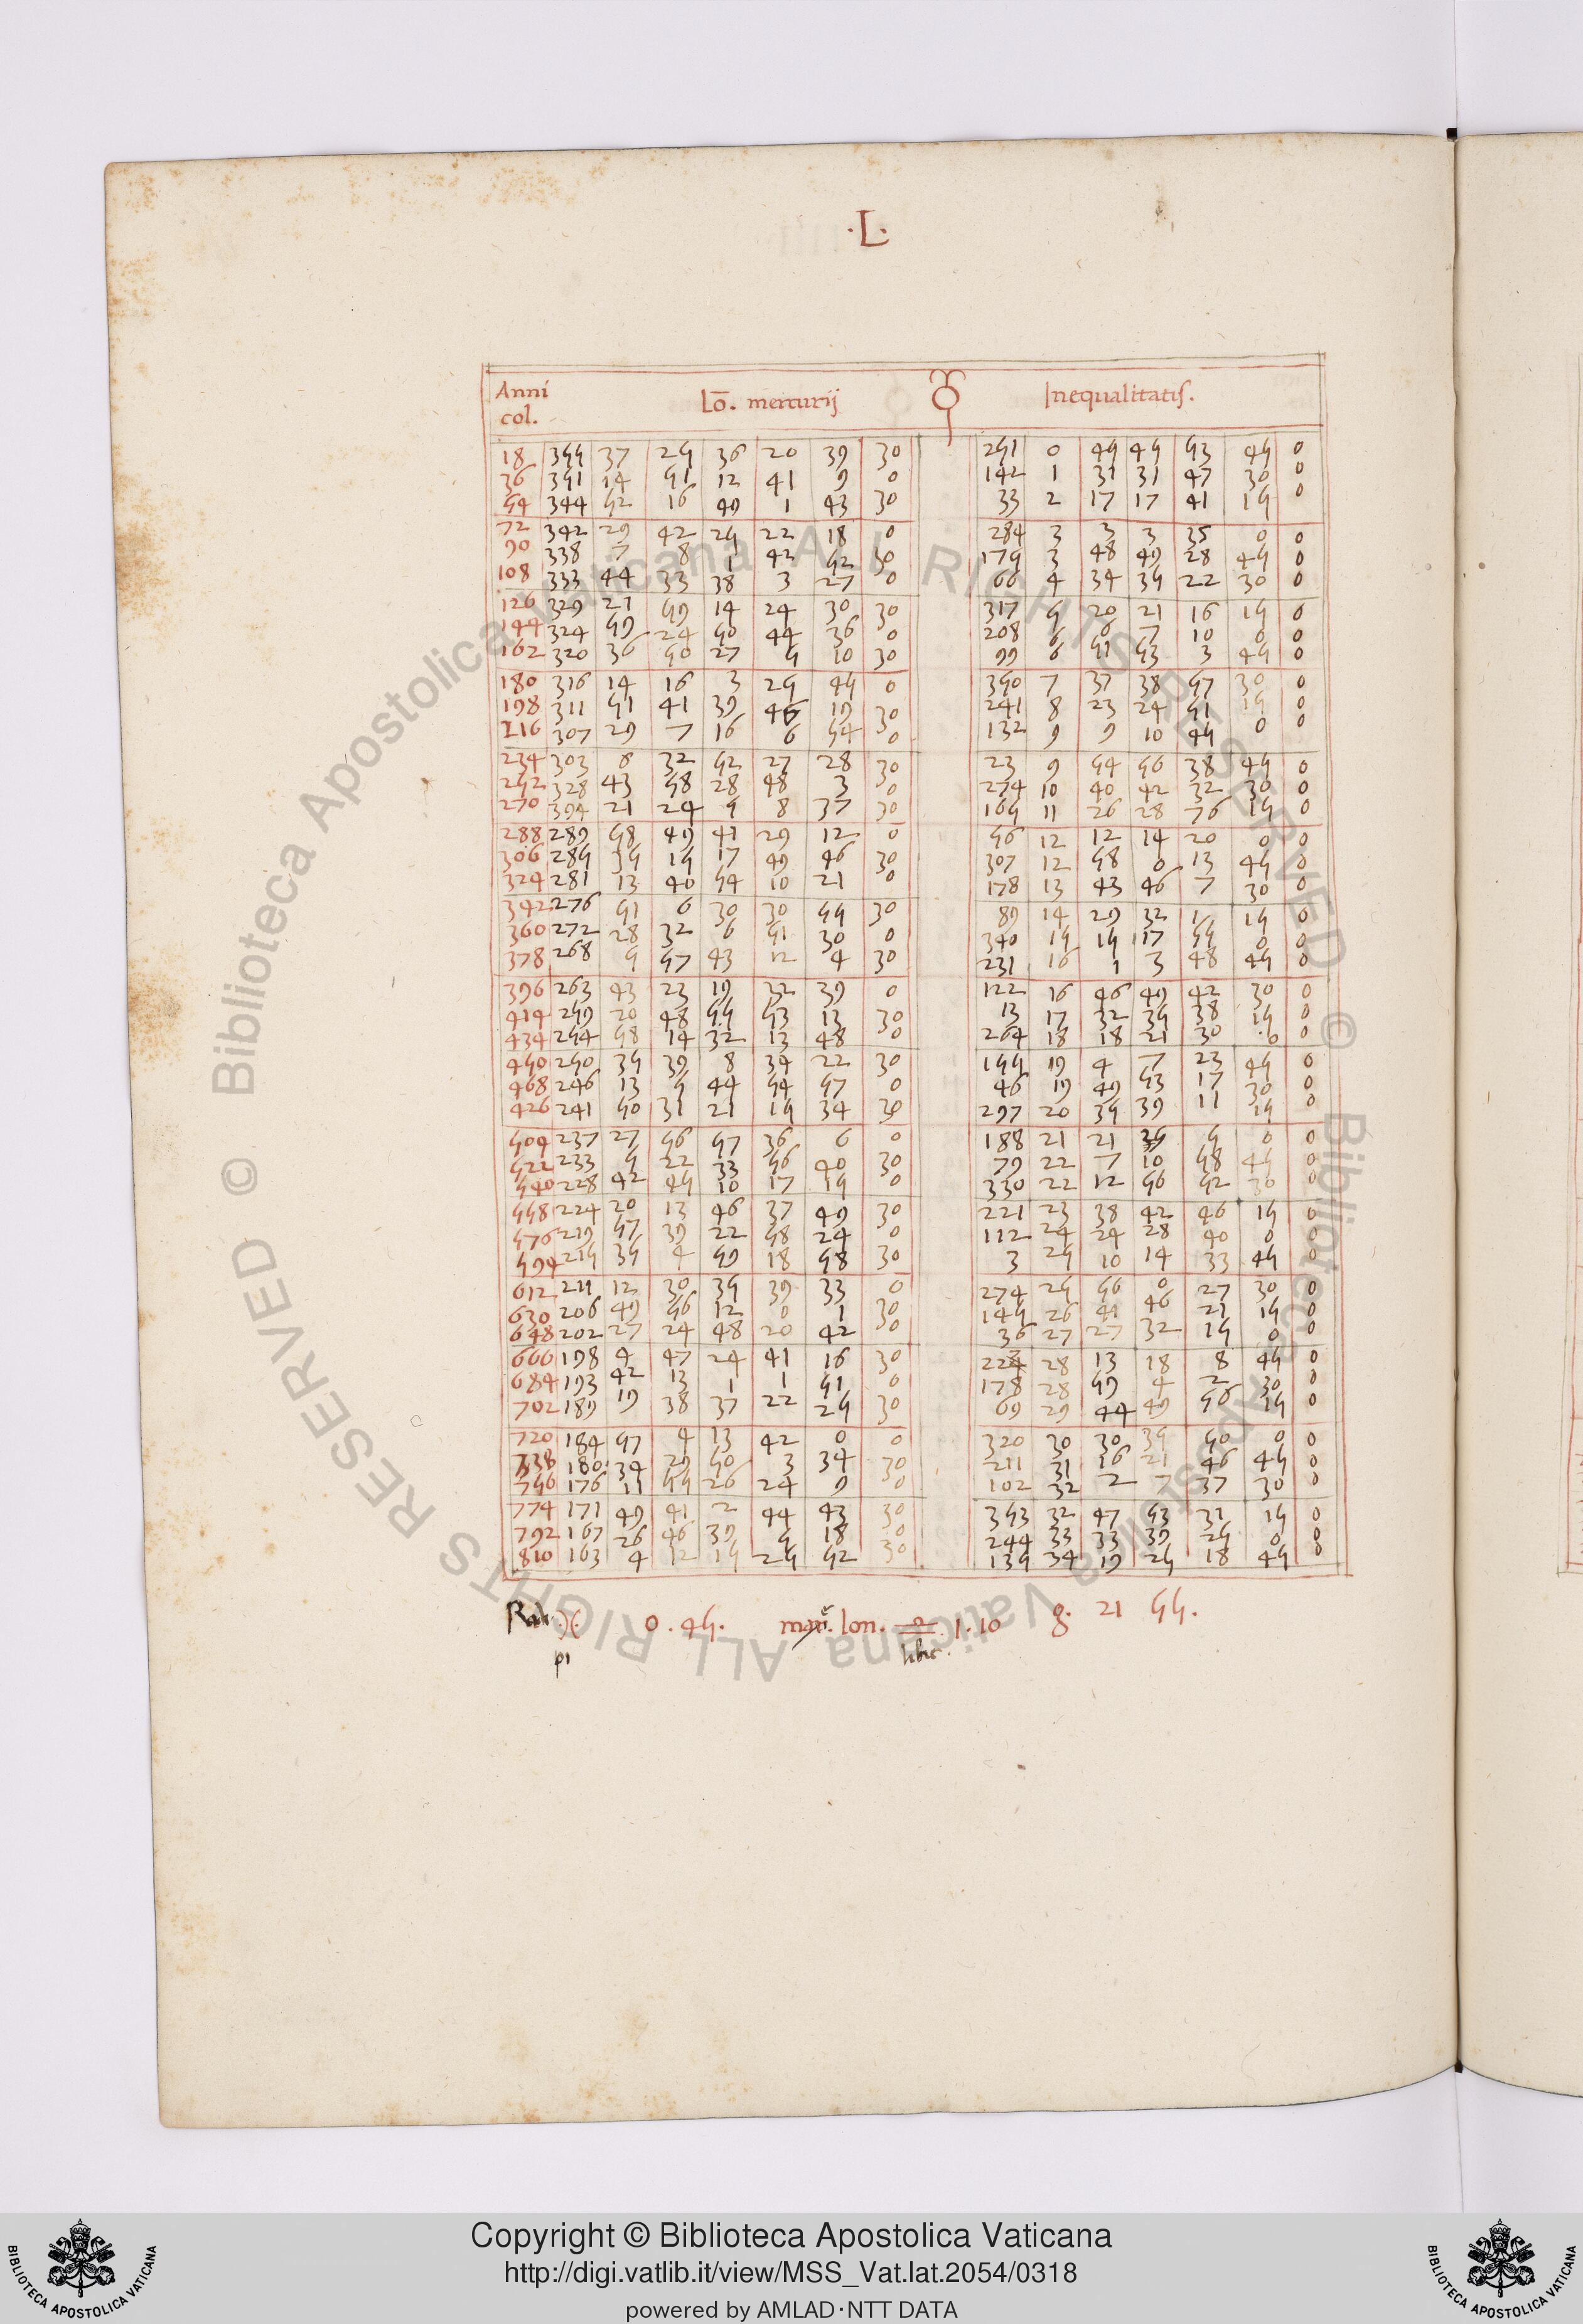 ·L·
Anni col. Lō. mercurij ☿ Inequalitatis.
18 355 37 25 36 20 39 30 251 0 45 45 53 45 0
36 351 14 51 12 41 9 0 142 1 31 31 47 30 0
54 344 52 16 49 1 43 30 33 2 17 17 41 15 0
72 342 29 42 25 22 18 0 284 3 3 3 35 0 0
90 338 7 8 1 42 52 30 175 3 48 49 28 45 0
108 333 44 33 38 3 27 0 66 4 34 35 22 30 0
126 329 21 59 14 24 30 30 317 5 20 21 16 15 0
144 324 59 24 50 44 36 0 208 6 6 7 10 0 0
162 320 36 50 27 5 10 30 99 6 51 53 3 45 0
180 316 14 16 3 25 45 0 350 7 37 38 57 30 0
198 311 51 41 39 46 19 30 241 8 23 24 51 15 0
216 307 29 7 16 6 54 0 132 9 9 10 45 0 0
234 303 8 32 52 27 28 30 23 9 54 56 38 45 0
252 328 43 58 28 48 3 0 274 10 40 42 32 30 0
270 394 21 24 5 8 37 30 165 11 26 28 76 15 0
288 289 58 49 41 29 12 0 56 12 12 14 20 0 0
306 285 35 15 17 49 46 30 307 12 58 0 13 45 0
324 281 13 40 54 10 21 0 178 13 43 46 7 30 0
342 276 51 6 30 30 55 30 89 14 29 32 1 15 0
360 272 28 32 6 51 30 0 340 15 15 17 55 0 0
378 268 5 57 43 12 4 30 231 16 1 3 48 45 0
396 263 43 23 19 32 39 0 122 16 46 49 42 30 0
414 259 20 48 55 53 13 30 13 17 32 35 38 15 0
434 254 58 14 32 13 48 0 264 18 18 21 30 0 0
450 250 35 39 8 34 22 30 155 19 4 7 23 45 0
468 246 13 5 44 54 57 0 46 19 49 53 17 30 0
426 241 50 31 21 15 34 30 297 20 35 39 11 15 0
504 237 27 56 57 36 6 0 188 21 21 5 0 0
522 233 5 22 33 56 40 30 79 22 7 10 58 45 0
540 228 42 45 10 17 15 0 330 22 12 56 52 30 0
558 224 20 13 46 37 49 30 221 23 38 42 46 15 0
576 219 57 39 22 58 24 0 112 24 24 28 40 0 0
594 215 35 4 59 18 58 30 3 25 10 14 33 45 0
612 211 12 30 35 39 33 0 274 25 56 0 27 30 0
630 206 49 56 12 0 1 30 145 26 41 46 21 15 0
648 202 27 24 48 20 42 0 36 27 27 32 15 0 0
666 198 4 47 24 41 16 30 28 13 18 8 45 0
684 193 42 13 1 1 51 0 178 28 59 4 2 30 0
702 189 19 38 37 22 25 30 69 29 44 49 56 15 0
720 184 57 4 13 42 0 0 320 30 30 35 50 0 0
738 180 34 29 50 3 34 30 211 31 16 21 46 45 0
756 176 11 55 26 24 9 0 102 32 2 7 37 30 0
774 171 49 41 2 44 43 30 353 32 47 53 31 15 0
792 167 26 46 39 5 18 0 244 33 33 39 25 0 0
810 163 4 12 15 25 52 30 135 34 19 25 18 45 0
Rad. 0.45. lon. 1.10 g. 21 55.
libre.
© Biblioteca Apostolica Vaticana ALL RIGHTS RESERVED © Biblioteca Apostolica Vaticana ALL RIGHTS RESERVED
BIBLIOTECA APOSTOLICA VATICANA
Copyright © Biblioteca Apostolica Vaticana
http://digi.vatlib.it/view/MSS_Vat.lat.2054/0318
powered by AMLAD·NTT DATA
BIBLIOTECA APOSTOLICA VATICANA